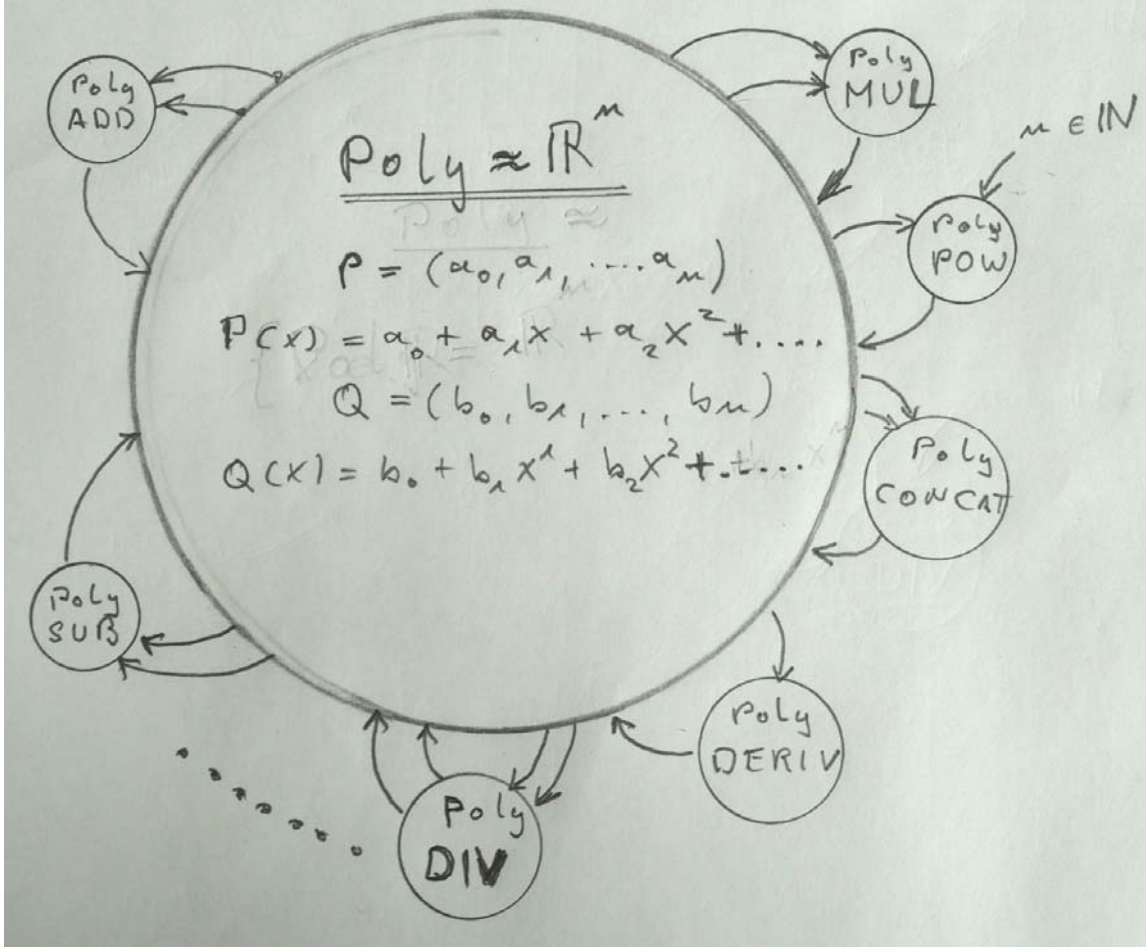 Poly ADD
Poly MUL
n ∈ ℕ
Poly POW
Poly ≈ ℝⁿ
Poly ≈
P = (a₀, a₁, .... aₙ)
P(x) = a₀ + a₁x + a₂x² + ....
Q = (b₀, b₁, ..., bₙ)
Q(x) = b₀ + b₁x¹ + b₂x² + ....
Poly CONCAT
Poly SUB
Poly DERIV
Poly DIV